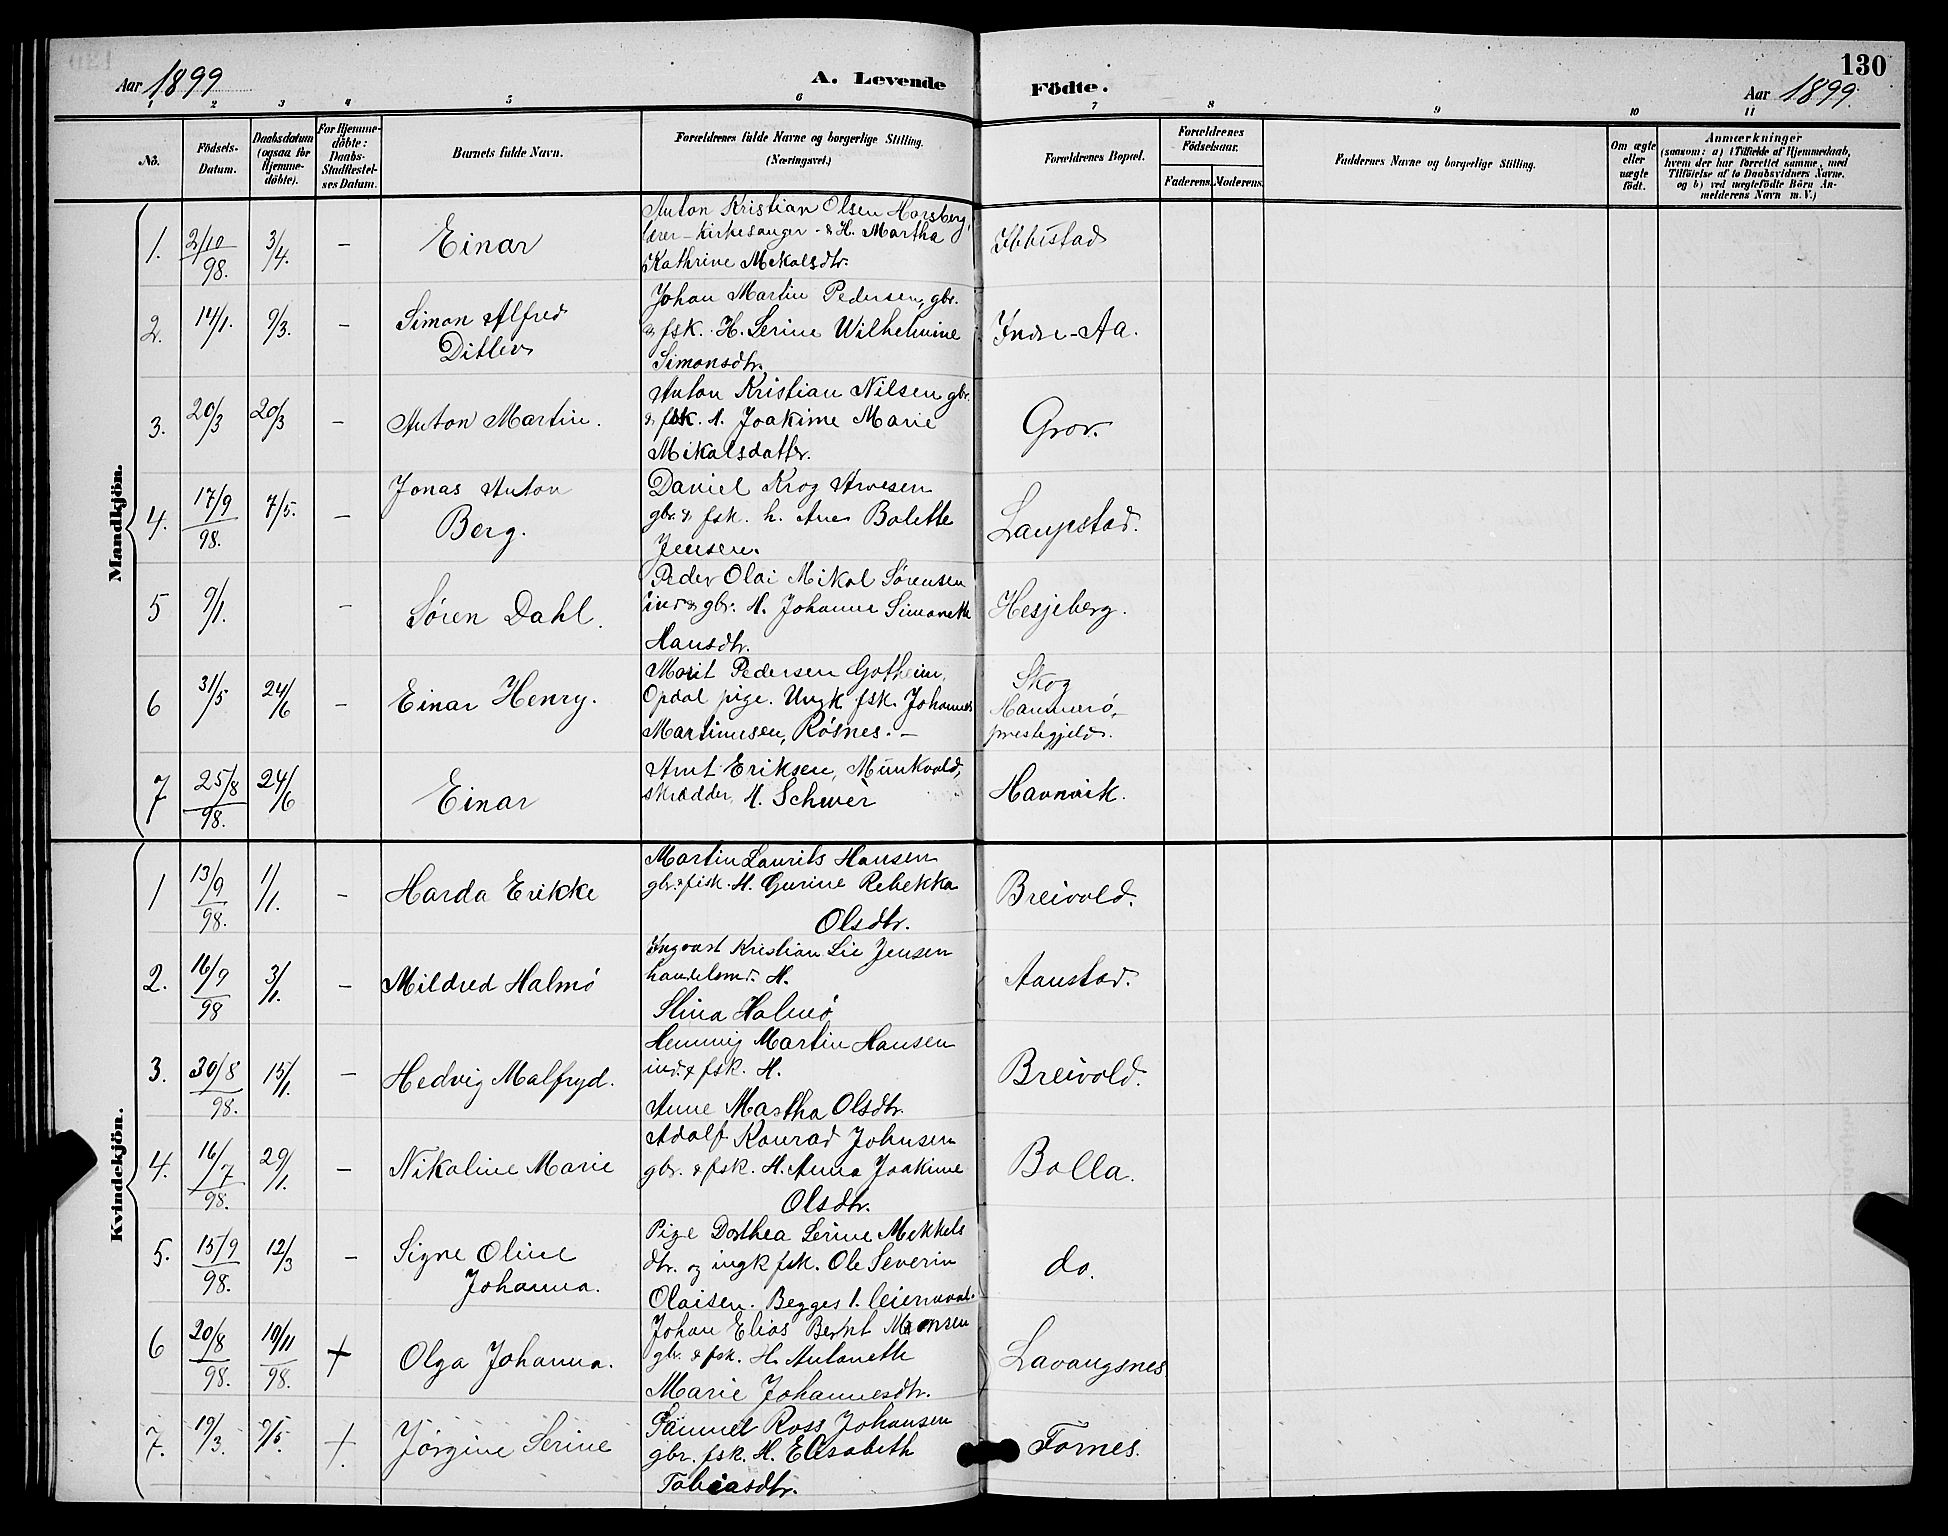 130
Aar 1899
A. Levende
Födte.
Aar 1899.
1 2 3 4 5 6 7 8 9 10 11
No.
Födsels-Datum.
Daabsdatum (ogsaa for Hjemme-döbte).
For Hjemme-döbte: Daabs-Stadfestel-ses Datum.
Barnets fulde Navn.
Forældrenes fulde Navne og borgerlige Stilling. (Næringsvei.)
Forældrenes Bopæl.
Forældrenes Födselsaar.
Faderens. Moderens.
Faddernes Navne og borgerlige Stilling.
Om ægte eller uægte födt.
Anmærkninger
(saasom: a) i Tilfælde af Hjemmedaab, hvem der har forrettet samme, med Tilföielse af to Daabsvidners Navne, og b) ved uægtefödte Börn An-melderens Navn m. V.)
Mandkjön.
1. 2/10 98. 3/4. – Einar
Anton Kristian Olsen Horsberg,
lærer – kirkesanger – & H. Martha
Kathrine Mikalsdtr.
Ibbestad
2. 14/1. 9/3. – Simon Alfred
Ditlev
Johan Martin Pedersen, gbr.
& fsk. H. Serine Wilhelmine
Simonsdtr.
Indre-Aa.
3. 20/3 20/3 – Anton Martin.
Anton Kristian Nilsen gbr.
& fsk. H. Joakime Marie
Mikalsdatter.
Grov.
4. 17/9 98. 7/5. – Jonas Anton
Berg.
Daniel Krog Arnesen
gbr. & fsk. h. Ane Bolette
Jensen.
Laupstad.
5 9/1. – Søren Dahl.
Peder Olai Mikal Sørensen
ind & gbr. H. Johanne Simonette
Hansdtr.
Hesjeberg.
6 31/5 24/6 – Einar Henry.
Marit Pedersen Gotheim,
Opdal pige. Ungk. fsk. Johannes
Martinusen, Røsnes. –
Skog
Hammerö-
prestegjeld.
7 25/8 98. 24/6 Einar
Arnt Eriksen, Munkvold,
skrædder, H.
Havnvik.
Kvindekjön.
1 13/9 98. 1/1. – Harda Erikke
Martin Laurits Hansen
gbr. & fisk. H. Gurine Rebekka
Olsdtr.
Breivold.
2. 16/9 98 3/1. – Mildred Halmö
Ingvart Kristian Lie Jensen
handelsmd. H.
Stina Halmö
Aanstad.
3. 30/8 98. 15/1. – Hedvig Malfryd.
Hemmig Martin Hansen
ind. & fsk. H.
Anne Martha Olsdtr.
Breivold.
4. 16/7 98. 29/1. – Nikoline Marie
Adolf Konrad Johnsen
gbr. & fsk. H. Anna Joakime
Olsdtr.
Bolla.
5. 15/9 98. 12/3 – Signe Oline
Johanna.
Pige Dorthea Serine Mekkels
dtr. og ungk fsk. Ole Severin
Olaisen. Begges 1. leiermaal.
do.
6 20/8 98. 19/11 98. + Olga Johanna.
Johan Elias Bernt Monsen
gbr. & fsk. H. Antonette
Marie Johannesdtr.
Lavangsnes
7. 19/3. 9/5. + Jørgine Serine
Samuel Ross Johansen
gbr. fsk. H. Elisabeth
Tobiasdtr.
Fornes.